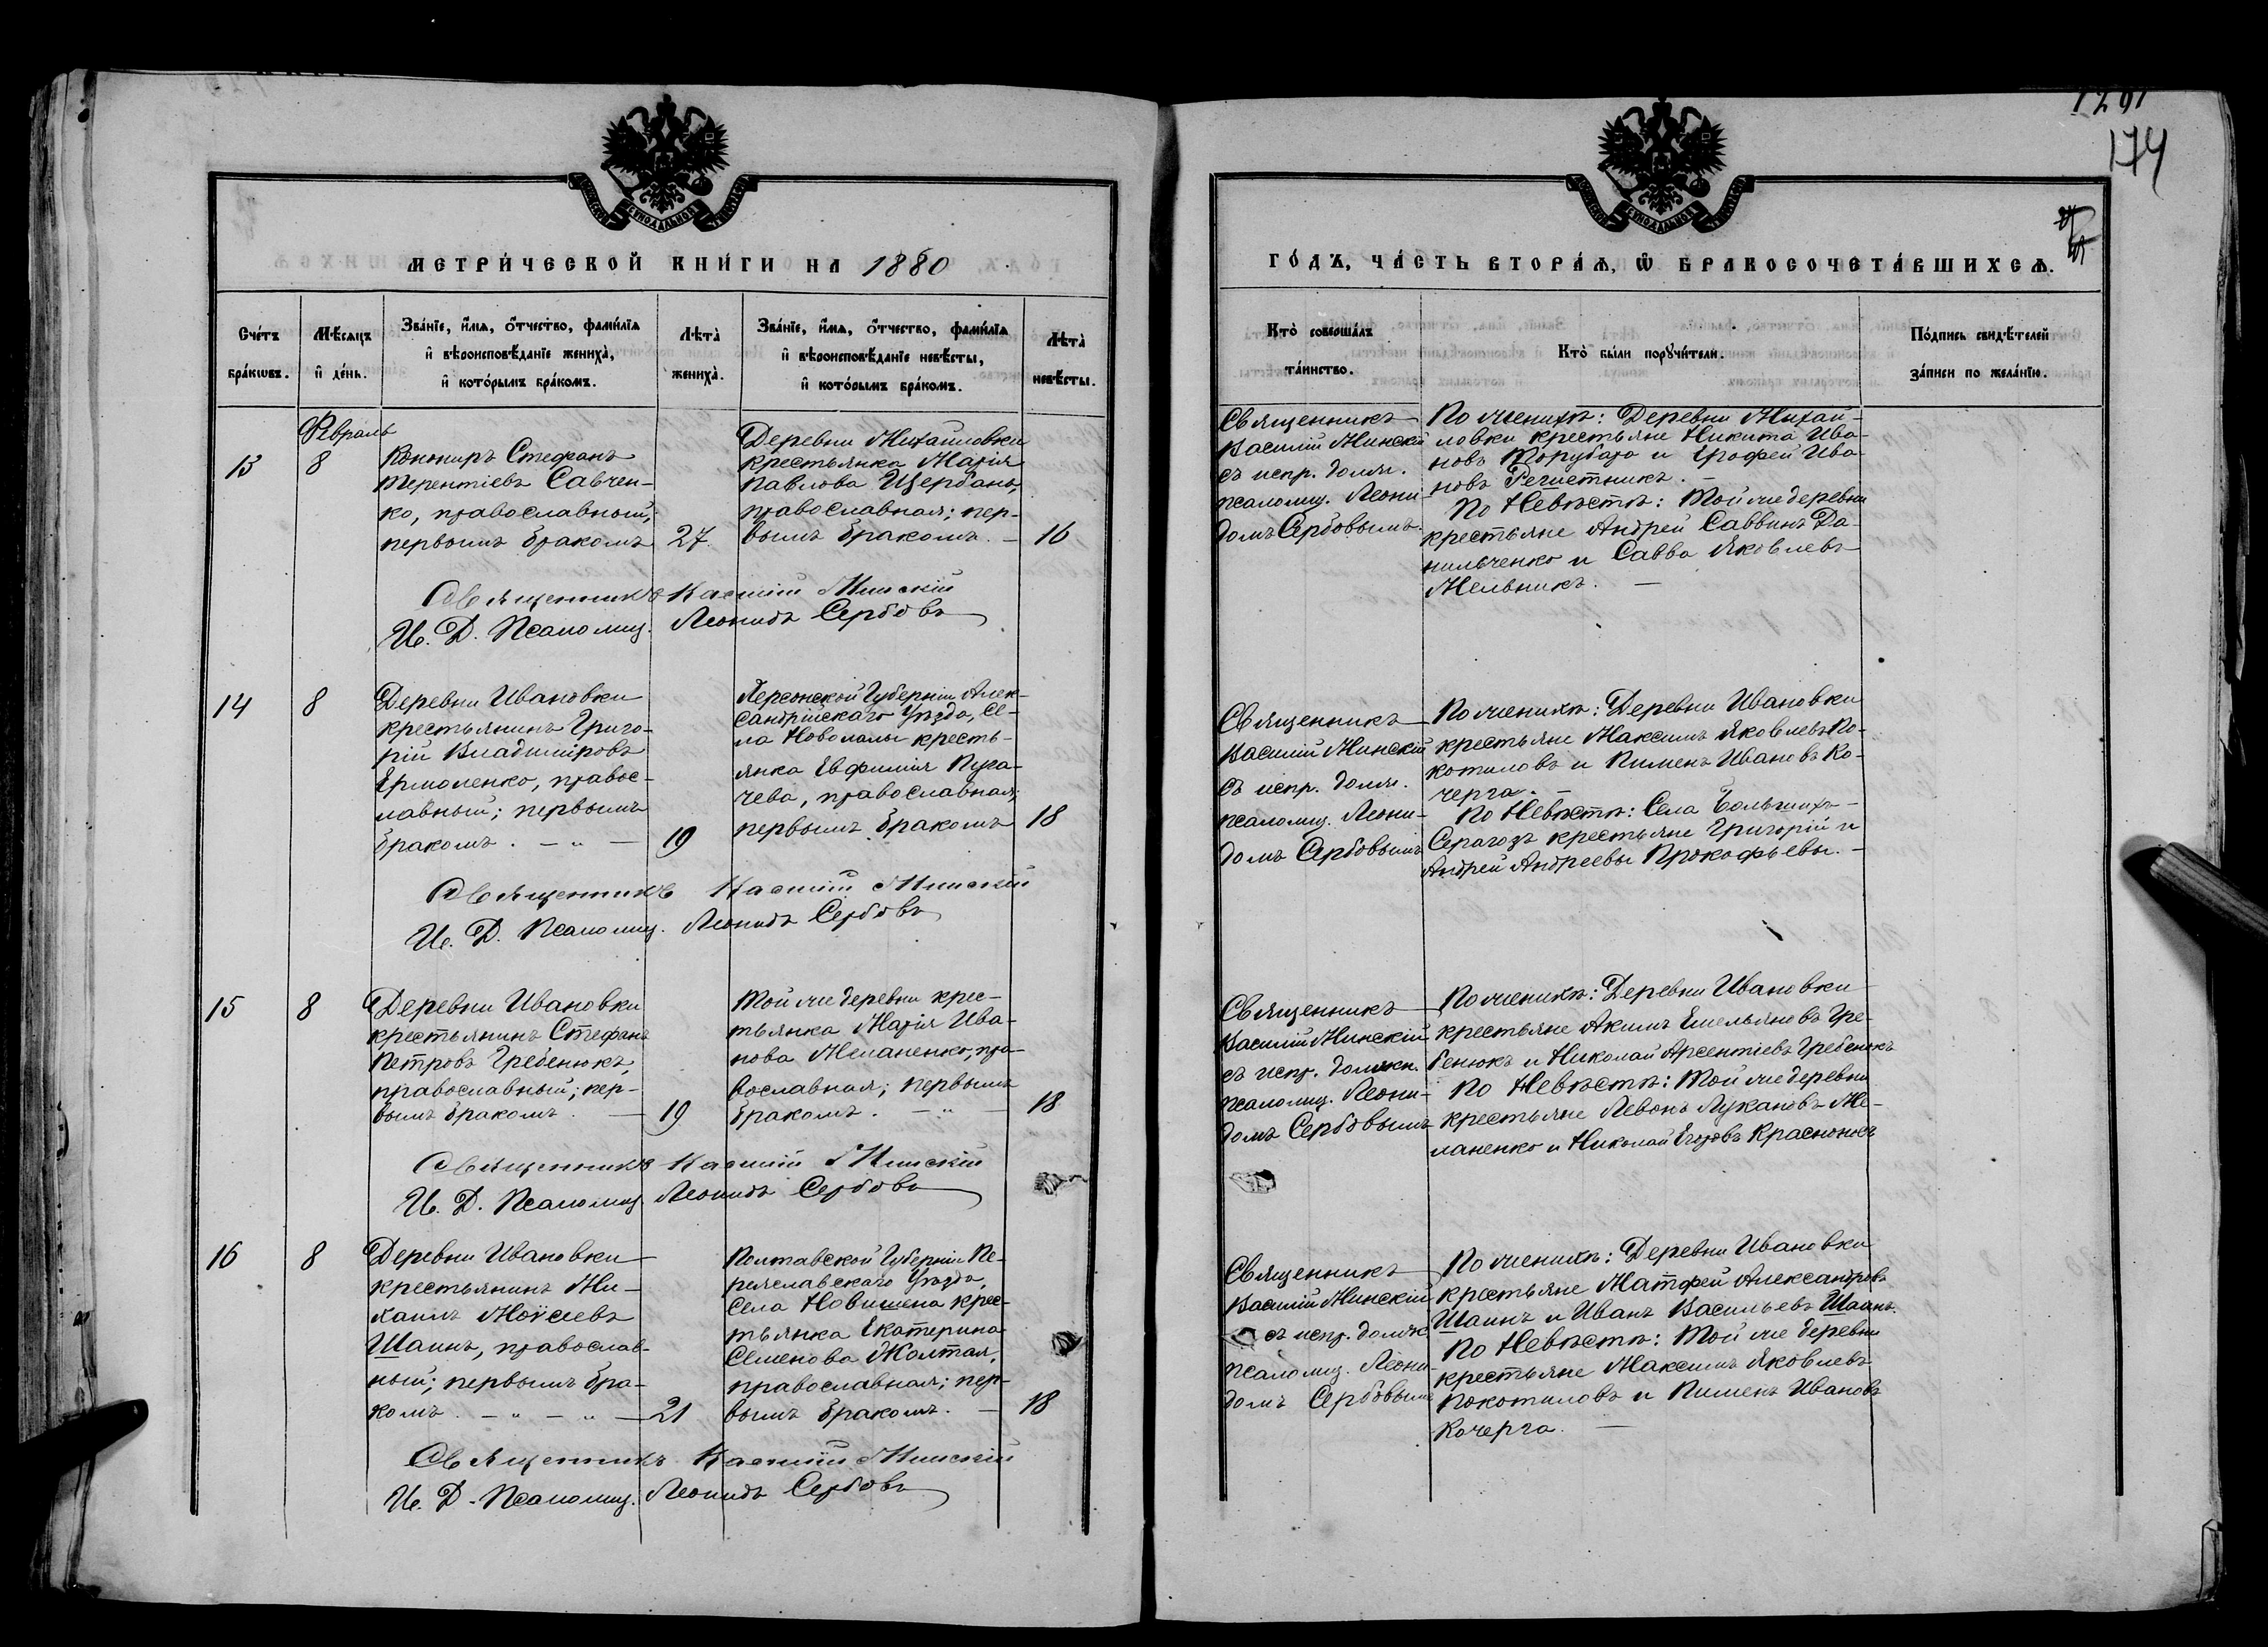 МЕТРИЧЕСКОЙ КНИГИ НА 1880
Счетъ браковъ.
Мѣсяцъ и день.
Званіе, имя, отчество, фамилія
и вѣроисповѣданіе жениха,
и которымъ бракомъ.
Лѣта жениха.
Званіе, имя, отчество, фамилія
и вѣроисповѣданіе невѣсты,
и которымъ бракомъ.
Лѣта невѣсты.
Февраль
13
8
Юнкиръ Стефанъ
Терентіевъ Савчен-
ко, православный,
первымъ бракомъ
27.
Деревни Михайловки
крестьянка Марія
Павлова Щербань,
православная; пер-
вымъ бракомъ. —
16
Священникъ Василій Минскій
И. Д. Псаломщ. Леонидъ Сербовъ
14
8
Деревни Ивановки
крестьянинъ Григо-
рій Владиміровъ
Ермоленко, правос-
лавный; первымъ
бракомъ. — „ —
19
Херсонской Губерніи Алек-
сандрійскаго Уѣзда, Се-
ла кресть-
янка Евфимія Пуга-
чева, православная;
первымъ бракомъ
18
Священникъ Василій Минскій
И. Д. Псаломщ. Леонидъ Сербовъ
15
8
Деревни Ивановки
крестьянинъ Стефанъ
Петровъ Гребенюкъ,
православный; пер-
вымъ бракомъ. —
19
Той же деревни крес-
тьянка Марія Ива-
нова Меланенко, пра-
вославная; первымъ
бракомъ. — „ —
18
Священникъ Василій Минскій
И. Д. Псаломщ. Леонидъ Сербовъ
16
8
Деревни Ивановки
крестьянинъ Ми-
хаилъ Моѵсеевъ
Шаинъ, православ-
ный; первымъ бра-
комъ. — „ — „ —
21
Полтавской Губерніи Пе-
реяславскаго Уѣзда,
Села крес-
тьянка Екатерина
Семенова Жолтая,
православная; пер-
вымъ бракомъ. —
18
Священникъ Василій Минскій
И. Д. Псаломщ. Леонидъ Сербовъ
174
ГОДЪ, ЧАСТЬ ВТОРАЯ, Ѡ БРАКОСОЧЕТАВШИХСЯ.
Кто совершалъ
таинство.
Кто были поручители.
Подпись свидѣтелей
записи по желанію.
Священникъ
Василій Минскій
съ испр. должн.
псаломщ. Леони-
домъ Сербовымъ.
По женихѣ: Деревни Михай-
ловки крестьяне Никита Ива-
новъ Торубара и Ерофей Ива-
новъ Регистникъ. —
По Невѣстѣ: Той же деревни
крестьяне Андрей Саввинъ Да-
нильченко и Савва Яковлевъ
Мельникъ. —
Священникъ
Василій Минскій
съ испр. должн.
псаломщ. Леони-
домъ Сербовымъ
По женихѣ: Деревни Ивановки
крестьяне Максимъ Яковлевъ По-
котиловъ и Пименъ Ивановъ Ко-
черга. —
По Невѣстѣ: Села Большихъ
Серагозъ крестьяне Григорій и
Андрей Андреевы Прокофьевы. —
Священникъ
Василій Минскій
съ испр. должн.
псаломщ. Леони-
домъ Сербовымъ
По женихѣ: Деревни Ивановки
крестьяне Акимъ Емельяновъ Гре-
бенюкъ и Николай Арсентіевъ Гребенюкъ
По Невѣстѣ: Той же деревни
крестьяне Левонъ Лукановъ Ме-
ланенко и Николай Егоровъ Красноносъ
Священникъ
Василій Минскій
съ испр. должн.
псаломщ. Леони-
домъ Сербовымъ
По женихѣ: Деревни Ивановки
крестьяне Матфей Александровъ
Шаинъ и Иванъ Васильевъ Шаинъ.
По Невѣстѣ: Той же деревни
крестьяне Максимъ Яковлевъ
Покотиловъ и Пименъ Ивановъ
Кочерга. —